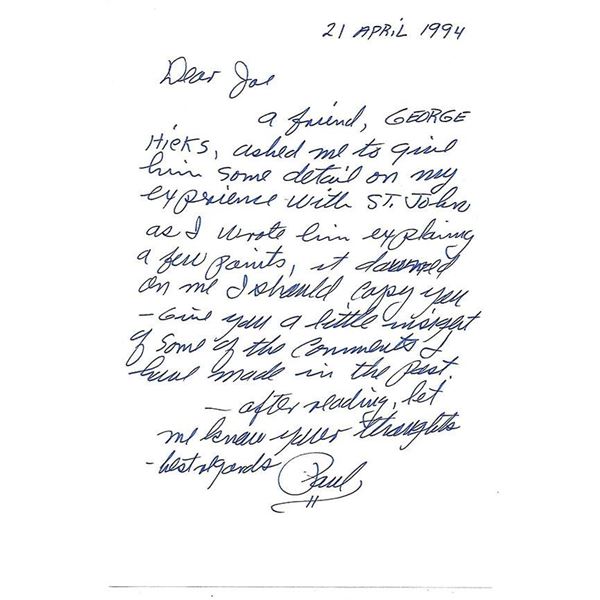 21 APRiL 1994
Dear Joe
a friend, GEORGE
HicKS, asked me to give
him some detail on my
experience with ST. John
as I wrote him explaining
a few points, it dawned
on me I should copy you
- Give you a little insight
of some of the comments I
have made in the past.
- after reading, let
me know your thoughts
- best regards Paul